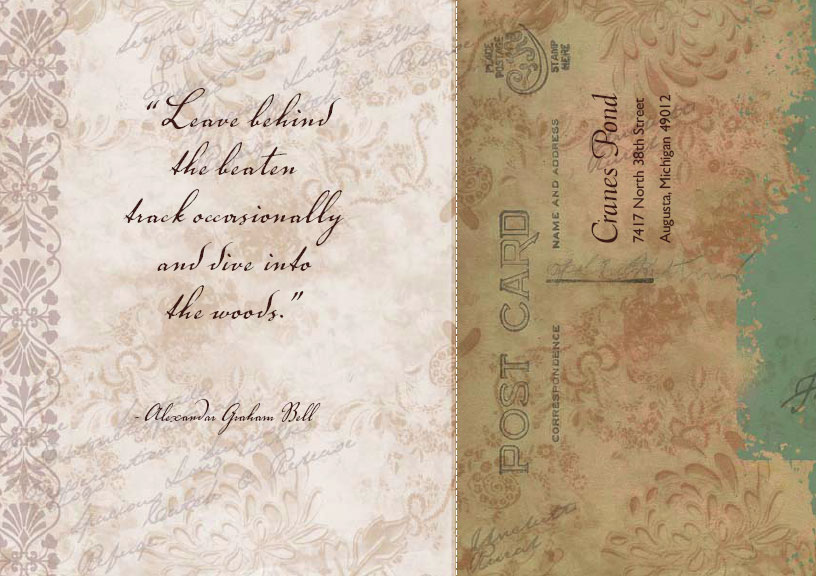 “Leave behind
the beaten
track occasionally
and dive into
the woods.”
- Alexandar Graham Bell
PLACE
POSTAGE
STAMP
HERE
POST CARD
NAME AND ADDRESS
CORRESPONDENCE
Cranes Pond
7417 North 38th Street
Augusta, Michigan 49012